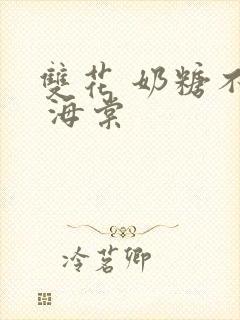 雙花 奶糖不
海棠
冷茗卿